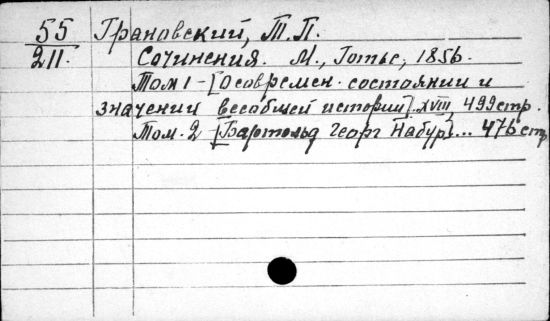 55 Грановский, Т.П.
211. Сочинения. М., Готье, 1856.
Том 1 - [О современ. состоянии и
значении всеобщей истории]. XVIII, 499 стр.
Том. 2 [Бартольд Георг Набур]... 476 стр.